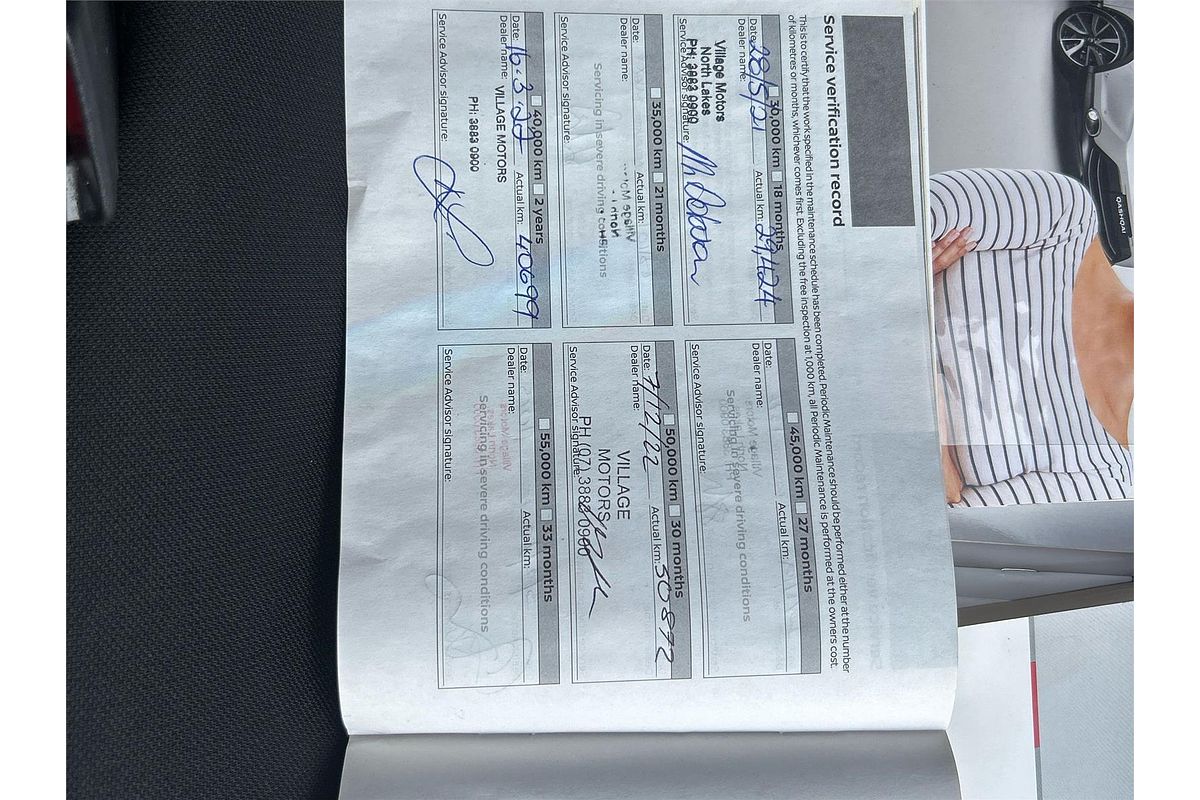 Service verification record
This is to certify that the work specified in the maintenance schedule has been completed. Periodic Maintenance should be performed either at the number
of kilometres or months, whichever comes first. Excluding the free inspection at 1,000 km, all Periodic Maintenance is performed at the owners cost.
30,000 km 18 months
Date: 28/5/21 Actual km: 29,424
Dealer name:
Village Motors
North Lakes
PH: 3883 0900
Service Advisor signature:
35,000 km 21 months
Date: Actual km:
Dealer name:
Servicing in severe driving conditions
Service Advisor signature:
40,000 km 2 years
Date: 16-3-22 Actual km: 40699
Dealer name: VILLAGE MOTORS
PH: 3883 0900
Service Advisor signature:
45,000 km 27 months
Date: Actual km:
Dealer name:
Servicing in severe driving conditions
Service Advisor signature:
50,000 km 30 months
Date: 7/12/22 Actual km: 50872
Dealer name:
VILLAGE
MOTORS
PH (07) 3883 0900
Service Advisor signature:
55,000 km 33 months
Date: Actual km:
Dealer name:
Servicing in severe driving conditions
Service Advisor signature:
QASHQAI